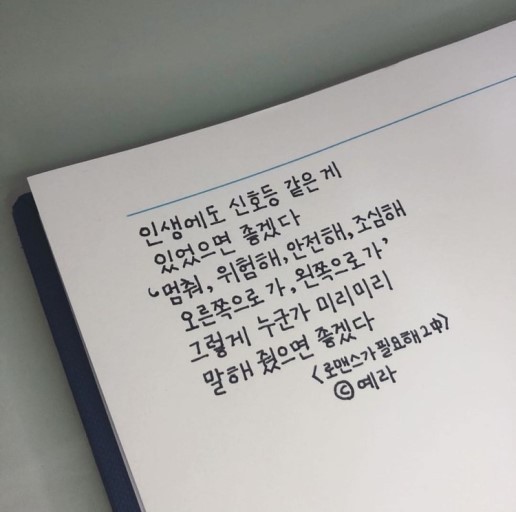 인생에도 신호등 같은 게
있었으면 좋겠다
'멈춰, 위험해, 안전해, 조심해
오른쪽으로 가, 왼쪽으로 가'
그렇게 누군가 미리미리
말해 줬으면 좋겠다
<로맨스가 필요해2 中>
© 예라